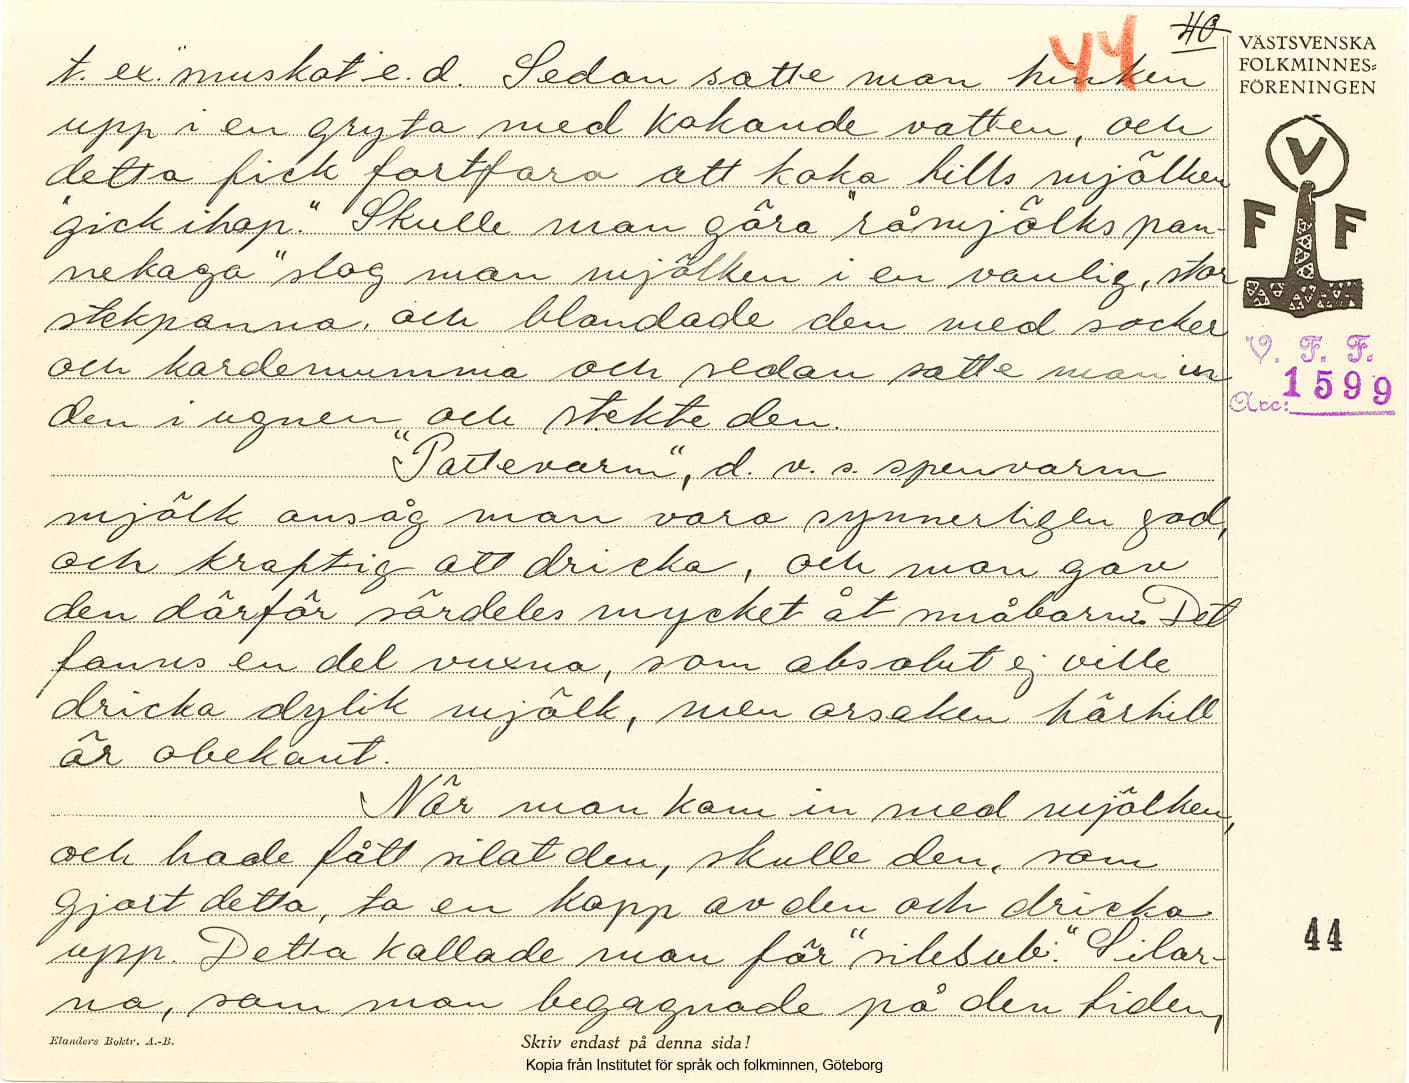 40
44
t. ex. "muskot" e. d. Sedan satte man hinken
upp i en gryta med kokande vatten, och
detta fick fortfara att koka tills mjölken
"gick ihop." Skulle man göra "råmjölkspan-
nekaga" slog man mjölken i en vanlig, stor
stekpanna, och blandade den med socker
och kardemumma och sedan satte man in
den i ugnen och stekte den.
"Pattevarm", d. v. s. spenvarm
mjölk ansåg man vara synnerligen god,
och kraftig att dricka, och man gav
den därför särdeles mycket åt småbarn. Det
fanns en del vuxna, som absolut ej ville
dricka dylik mjölk, men orsaken härtill
är obekant.
När man kom in med mjölken,
och hade fått silat den, skulle den, som
gjort detta, ta en kopp av den och dricka
upp. Detta kallade man för "silesub." Silar-
na, som man begagnade på den tiden,
VÄSTSVENSKA
FOLKMINNES-
FÖRENINGEN
V
F F
V. F. F.
Acc: 1599
44
Elanders Boktr. A.-B.
Skriv endast på denna sida!
Kopia från Institutet för språk och folkminnen, Göteborg